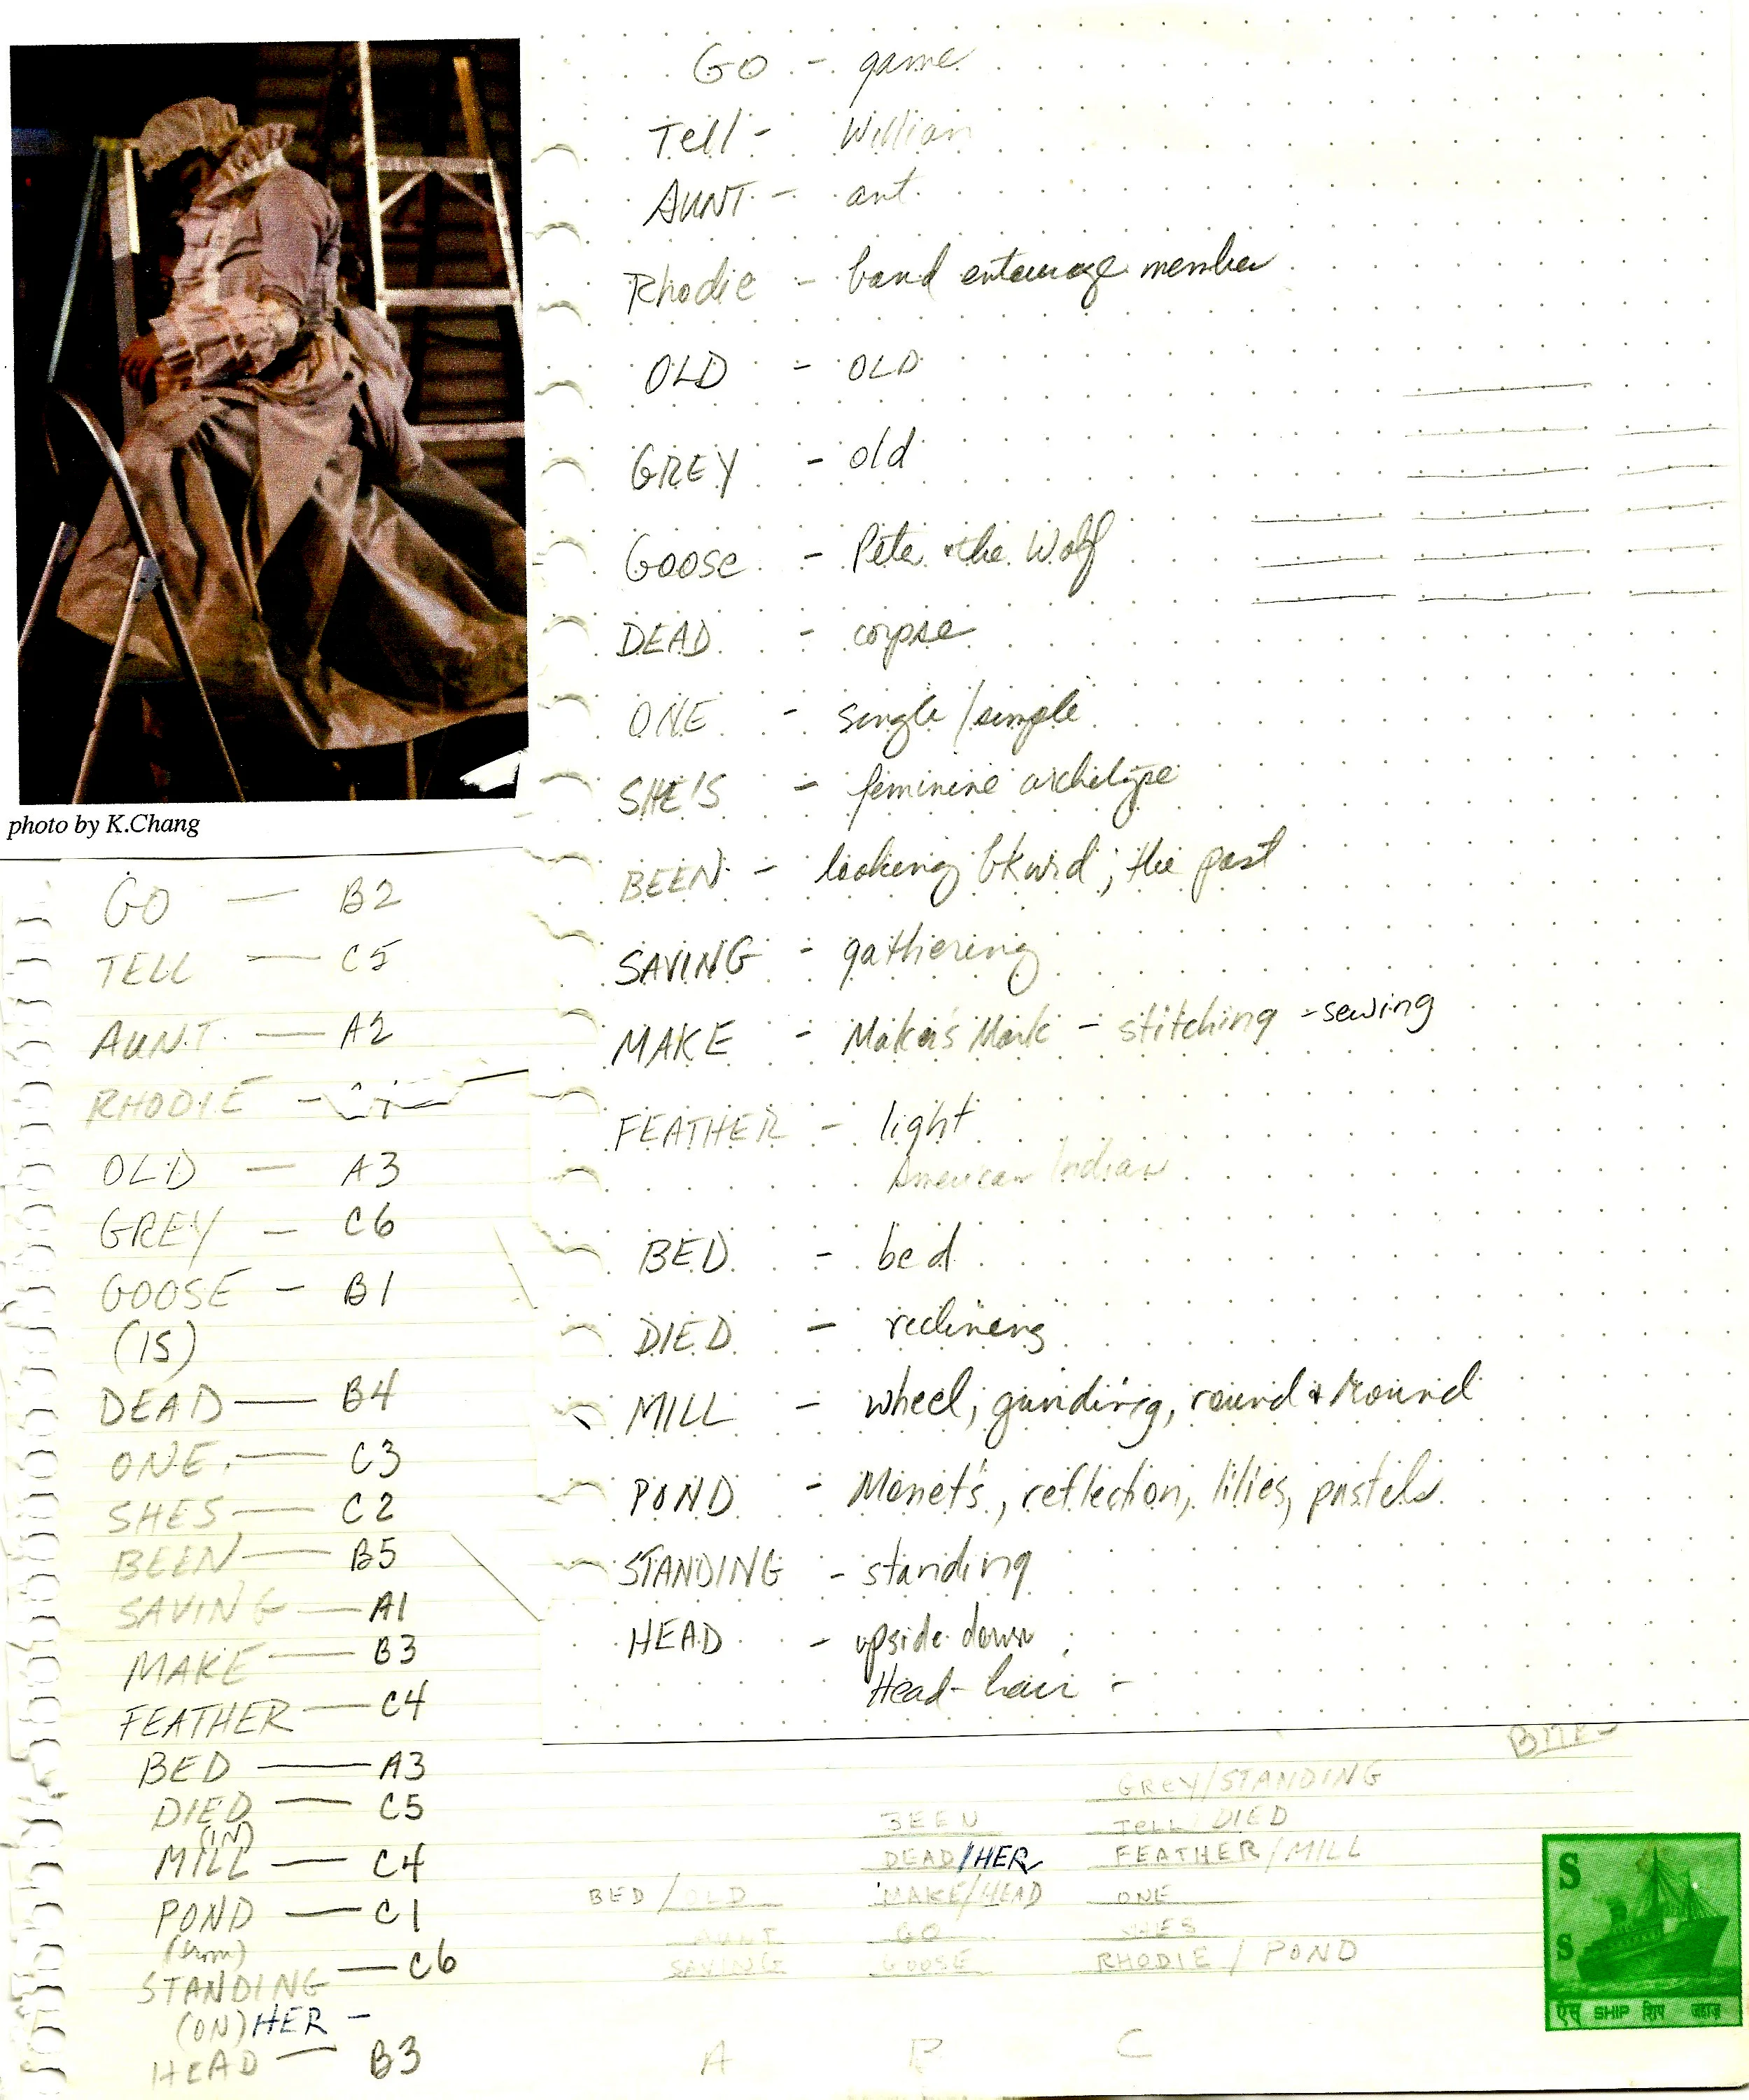 GO - game
Tell -
AUNT - ant
Rhodie - band entourage member
OLD - OLD
GREY - old
Goose - Pete & the Wolf
DEAD - corpse
ONE - single/simple
SHE'S - feminine archetype
BEEN - looking bkwrd; the past
SAVING - gathering
MAKE - Maker's Mark - stitching - sewing
FEATHER - light
American Indian
BED - bed
DIED - reclining
MILL - wheel, grinding, round & round
POND - Monet's, reflection, lilies, pastels
STANDING - standing
HEAD - upside down
Head - hair -
photo by K.Chang
GO — B2
TELL — C5
AUNT — A2
RHODIE —
OLD — A3
GREY — C6
GOOSE — B1
(IS)
DEAD — B4
ONE — C3
SHES — C2
BEEN — B5
SAVING — A1
MAKE — B3
FEATHER — C4
BED — A3
DIED — C5
(IN)
MILL — C4
POND — C1
(from)
STANDING — C6
(ON) HER -
HEAD — B3
GREY/STANDING
BEEN TELL/DIED
DEAD/HER FEATHER/MILL
BED/OLD MAKE/HEAD ONE
AUNT GO SHES
SAVING GOOSE RHODIE / POND
A B C
S
S
एस् SHIP शिप जहाज़